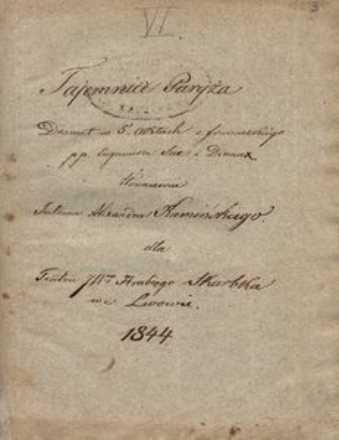 VI
3
Tajemnice Paryża
Dramat w 5. Aktach z francuskiego
pp. Eugeniusza Sue i Dinaux
tłómaczenia
Juliana Alexandra Kamińskiego.
dla
Teatru JWgo Hrabiego Skarbka
we Lwowie.
1844